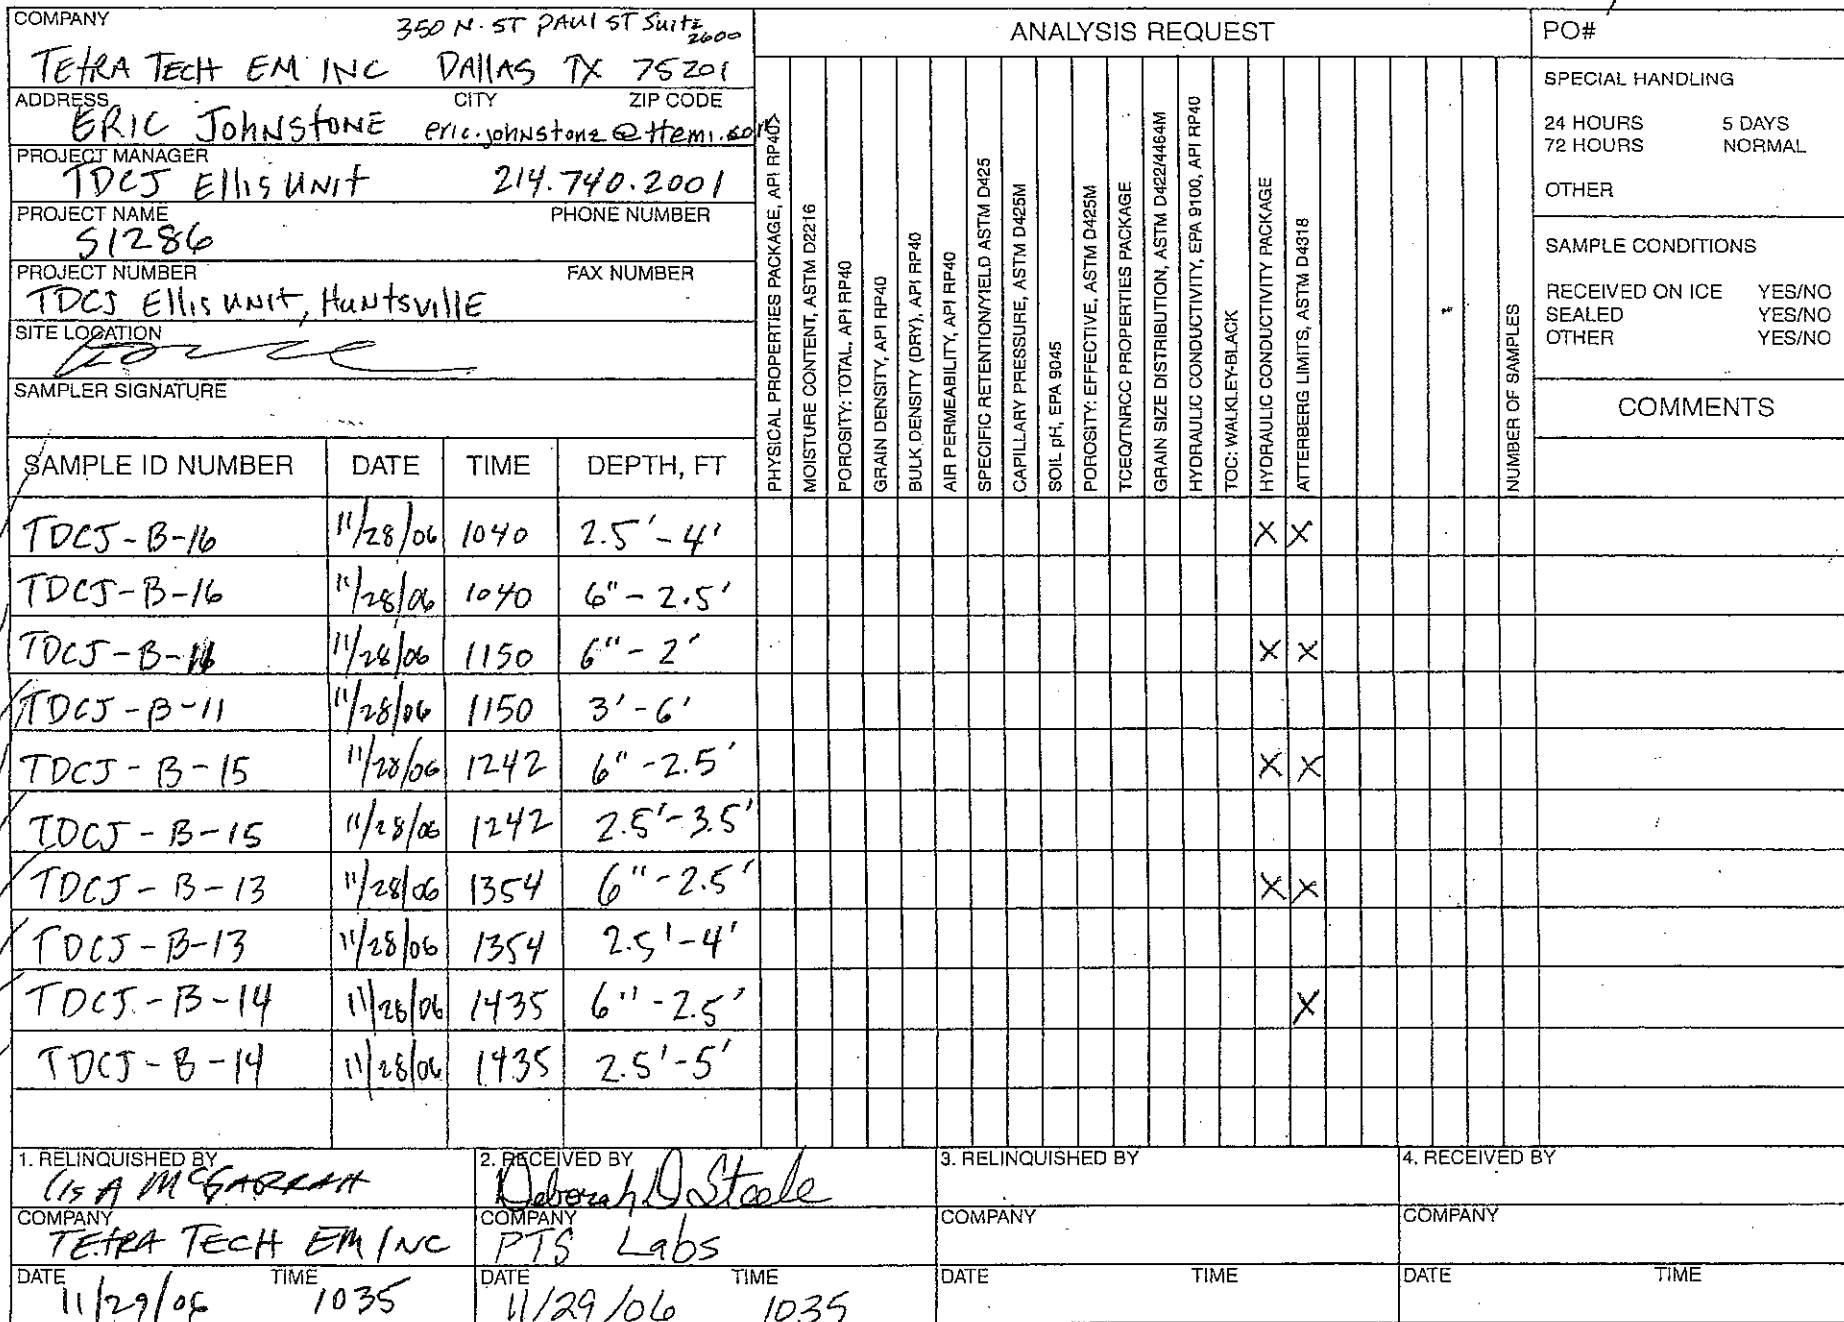 COMPANY 350 N. ST PAUl ST Suite 2600
TETRA TECH EM INC DAllAS TX 75201
ADDRESS CITY ZIP CODE
ERIC JohNStONE eric.johNstone@ttemi.com
PROJECT MANAGER
TDCJ Ellis UNit 214.740.2001
PROJECT NAME PHONE NUMBER
S1286
PROJECT NUMBER FAX NUMBER
TDCJ Ellis UNit, HuNtsvillE
SITE LOCATION
SAMPLER SIGNATURE
ANALYSIS REQUEST
PHYSICAL PROPERTIES PACKAGE, API RP40
MOISTURE CONTENT, ASTM D2216
POROSITY: TOTAL, API RP40
GRAIN DENSITY, API RP40
BULK DENSITY (DRY), API RP40
AIR PERMEABILITY, API RP40
SPECIFIC RETENTION/YIELD ASTM D425
CAPILLARY PRESSURE, ASTM D425M
SOIL pH, EPA 9045
POROSITY: EFFECTIVE, ASTM D425M
TCEQ/TNRCC PROPERTIES PACKAGE
GRAIN SIZE DISTRIBUTION, ASTM D422/4464M
HYDRAULIC CONDUCTIVITY, EPA 9100, API RP40
TOC: WALKLEY-BLACK
HYDRAULIC CONDUCTIVITY PACKAGE
ATTERBERG LIMITS, ASTM D4318
NUMBER OF SAMPLES
PO#
SPECIAL HANDLING
24 HOURS 5 DAYS
72 HOURS NORMAL
OTHER
SAMPLE CONDITIONS
RECEIVED ON ICE YES/NO
SEALED YES/NO
OTHER YES/NO
COMMENTS
SAMPLE ID NUMBER DATE TIME DEPTH, FT
TDCJ-B-16 11/28/06 1040 2.5'-4' X X
TDCJ-B-16 11/28/06 1040 6"-2.5'
TDCJ-B-11 11/28/06 1150 6"-2' X X
TDCJ-B-11 11/28/06 1150 3'-6'
TDCJ-B-15 11/28/06 1242 6"-2.5' X X
TDCJ-B-15 11/28/06 1242 2.5'-3.5'
TDCJ-B-13 11/28/06 1354 6"-2.5' X X
TDCJ-B-13 11/28/06 1354 2.5'-4'
TDCJ-B-14 11/28/06 1435 6"-2.5' X
TDCJ-B-14 11/28/06 1435 2.5'-5'
1. RELINQUISHED BY 2. RECEIVED BY 3. RELINQUISHED BY 4. RECEIVED BY
lisA McGARRAH Deborah D Steele
COMPANY COMPANY COMPANY COMPANY
TETRA TECH EM INC PTS Labs
DATE TIME DATE TIME DATE TIME DATE TIME
11/29/06 1035 11/29/06 1035